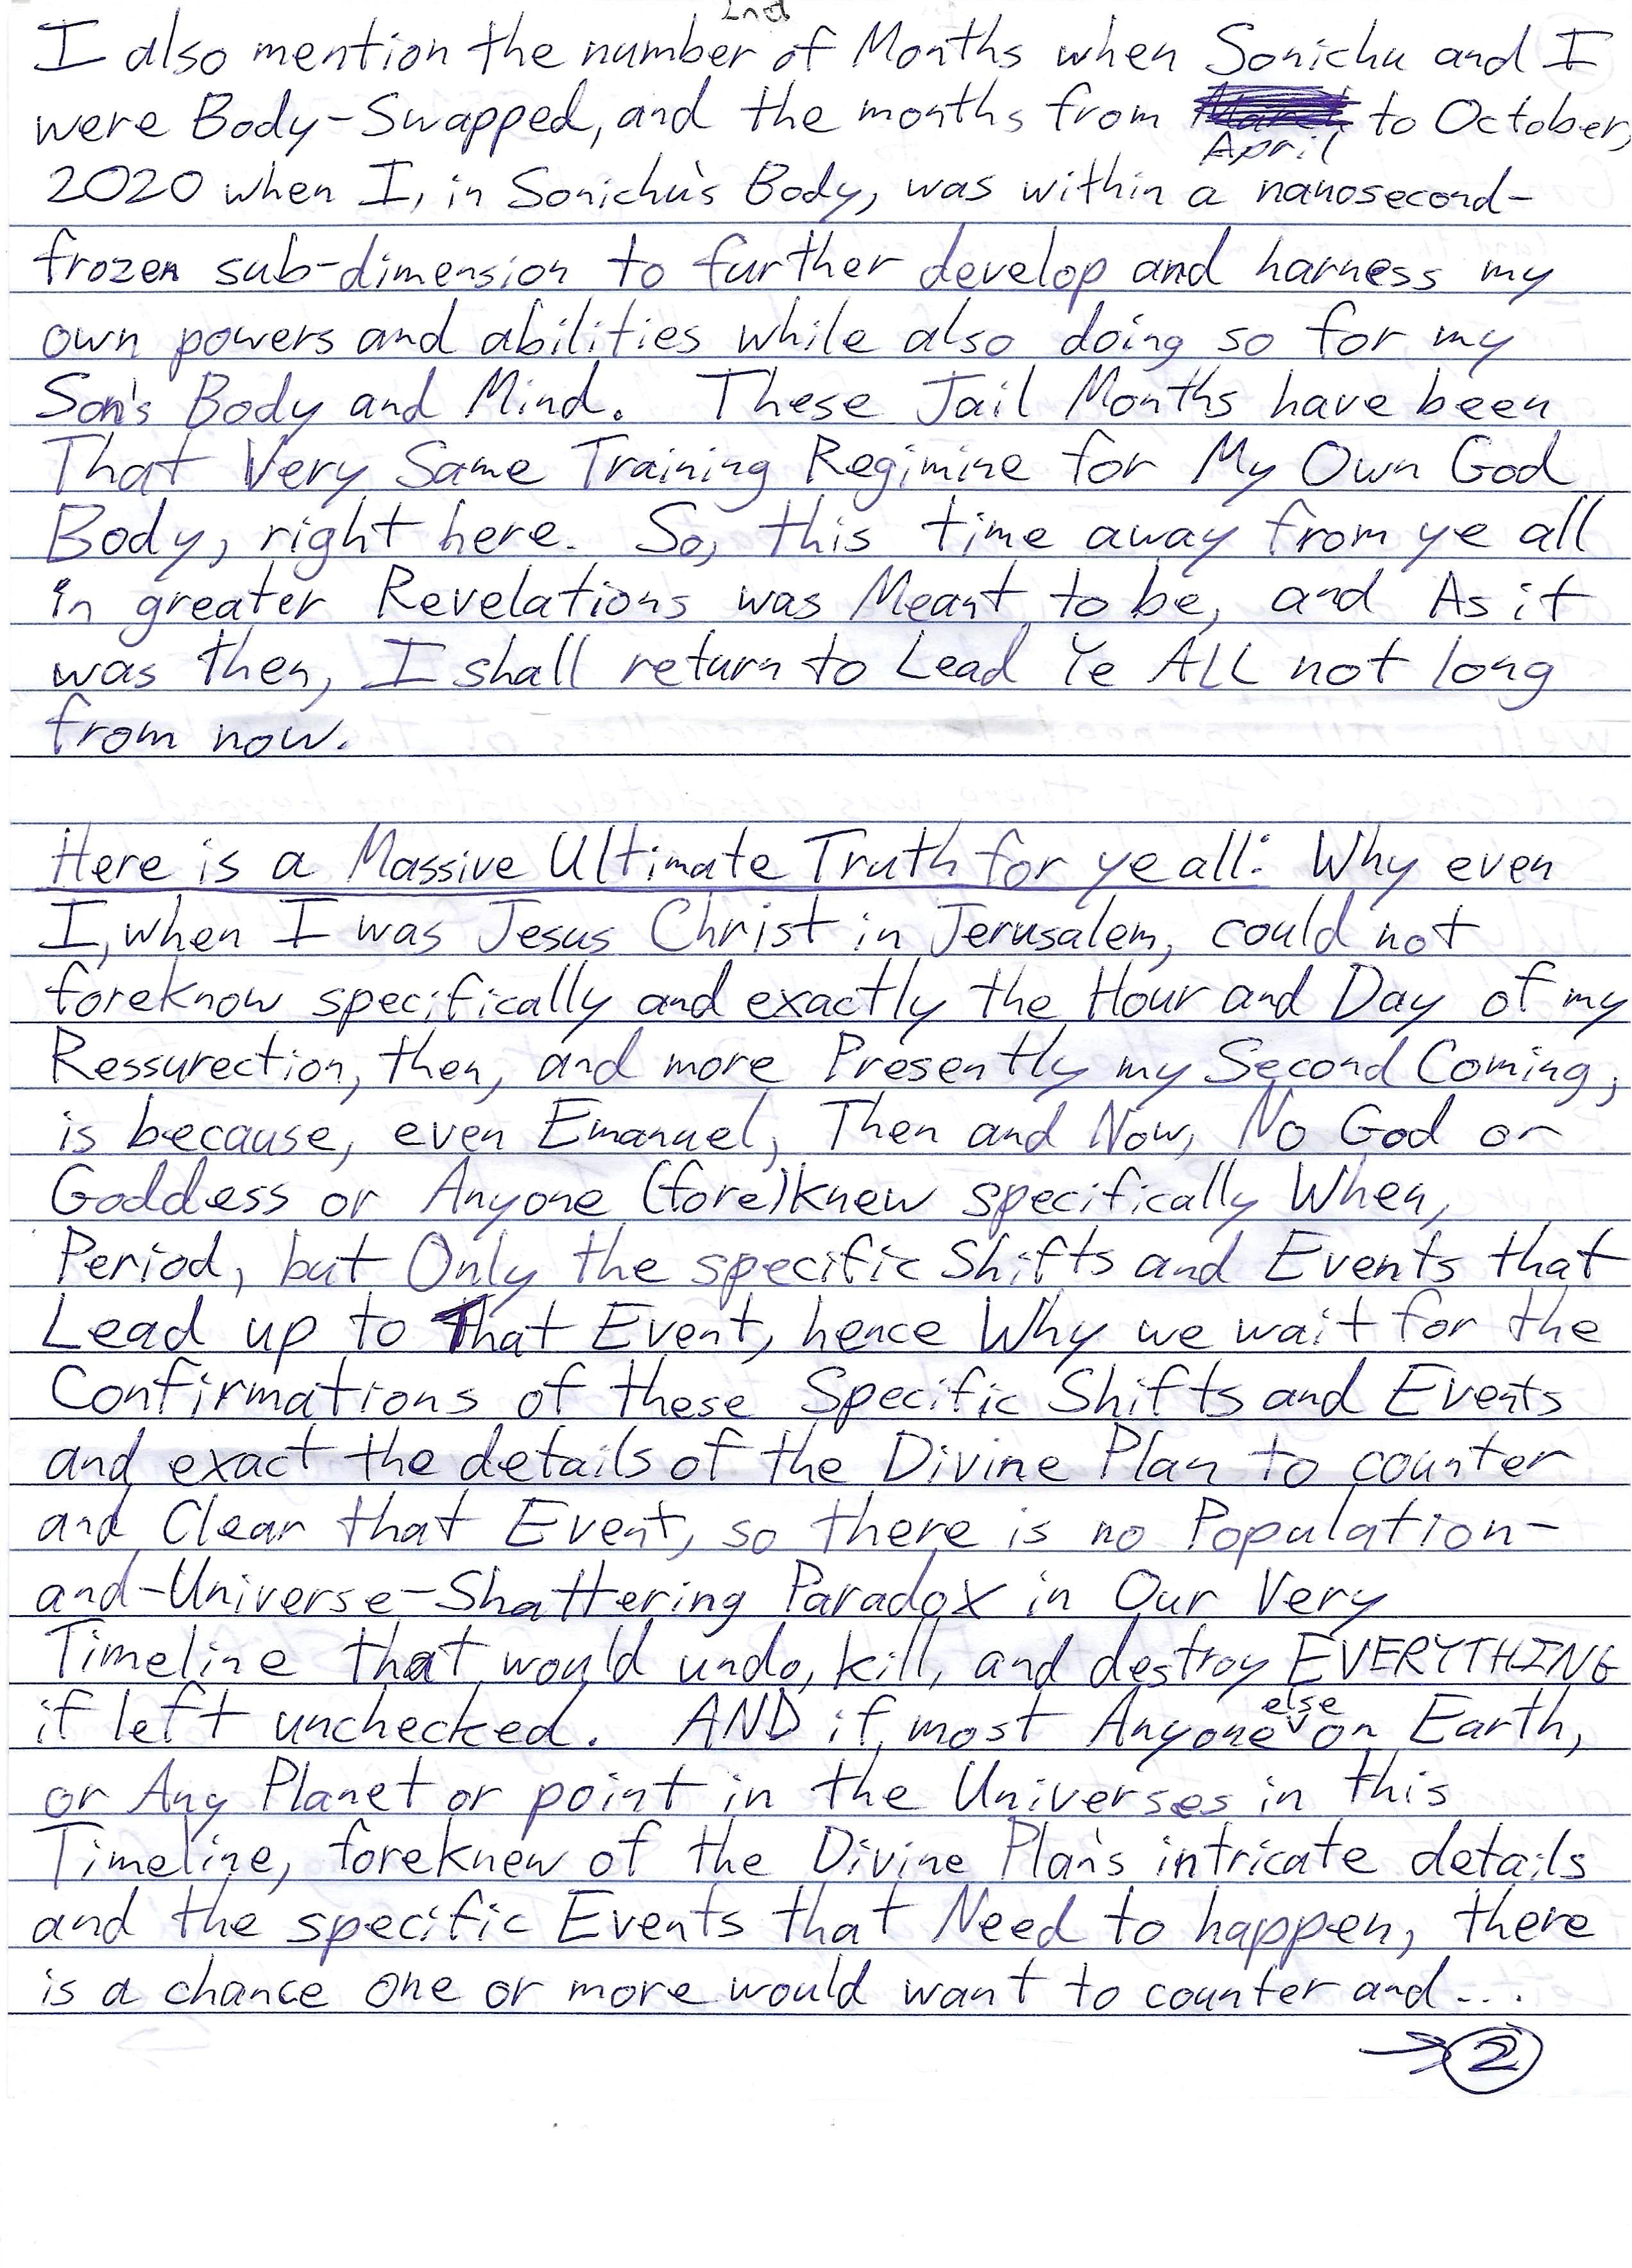 2nd
I also mention the number of Months when Sonichu and I
were Body-Swapped, and the months from March to October,
April
2020 when I, in Sonichu's Body, was within a nanosecond-
frozen sub-dimension to further develop and harness my
own powers and abilities while also doing so for my
Son's Body and Mind. These Jail Months have been
That Very Same Training Regimine for My Own God
Body, right here. So, this time away from ye all
in greater Revelations was Meant to be, and As it
was then, I shall return to Lead Ye ALL not long
from now.
Here is a Massive Ultimate Truth for ye all: Why even
I, when I was Jesus Christ in Jerusalem, could not
foreknow specifically and exactly the Hour and Day of my
Ressurection, then, and more Presently my Second Coming,
is because, even Emanuel, Then and Now, No God or
Goddess or Anyone (fore)knew specifically When,
Period, but Only the specific Shifts and Events that
Lead up to That Event, hence Why we wait for the
Confirmations of these Specific Shifts and Events
and exact the details of the Divine Plan to counter
and Clear that Event, so there is no Population-
and-Universe-Shattering Paradox in Our Very
Timeline that would undo, kill, and destroy EVERYTHING
if left unchecked. AND if most Anyone else on Earth,
or Any Planet or point in the Universes in this
Timeline, foreknew of the Divine Plan's intricate details
and the specific Events that Need to happen, there
is a chance one or more would want to counter and...
→ 2